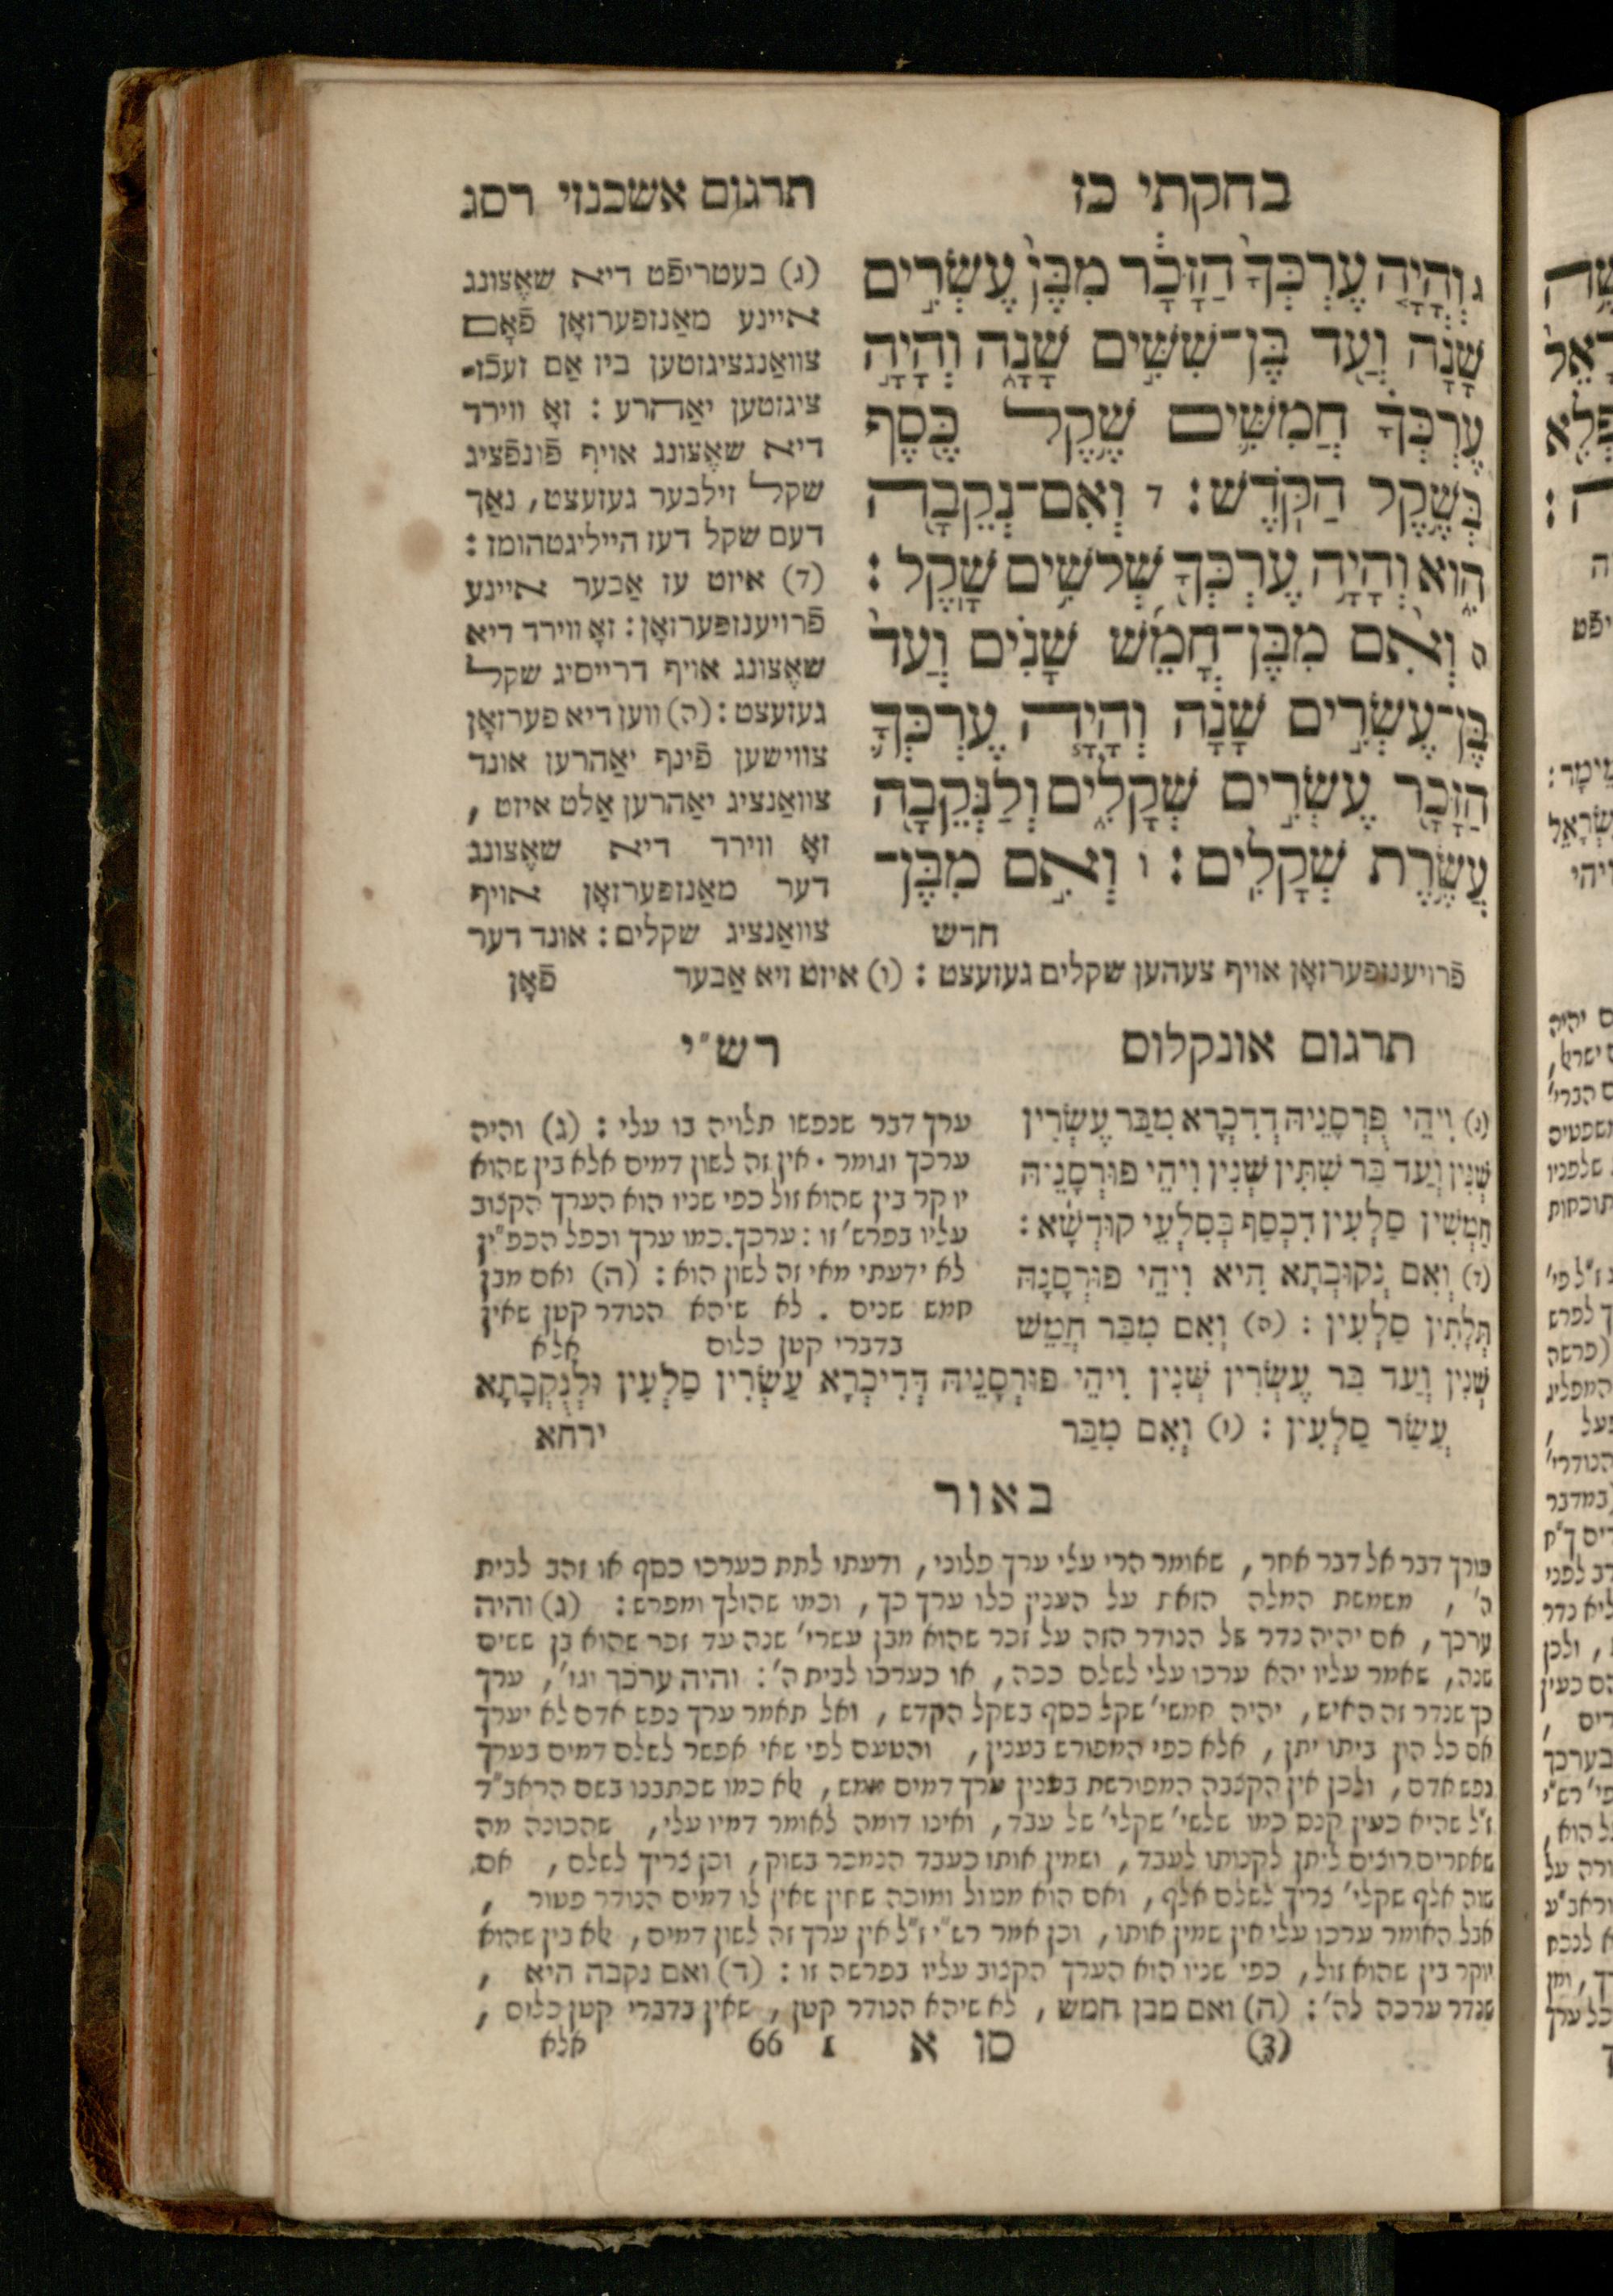 בחקתי כז
תרגום אשכנזי רסג
ג וְהָיָה עֶרְכְּךָ הַזָּכָר מִבֶּן עֶשְׂרִים
שָׁנָה וְעַד בֶּן־שִׁשִּׁים שָׁנָה וְהָיָה
עֶרְכְּךָ חֲמִשִּׁים שֶׁקֶל כֶּסֶף
בְּשֶׁקֶל הַקֹּדֶשׁ: ד וְאִם־נְקֵבָה
הִוא וְהָיָה עֶרְכְּךָ שְׁלֹשִׁים שָׁקֶל:
ה וְאִם מִבֶּן־חָמֵשׁ שָׁנִים וְעַד
בֶּן־עֶשְׂרִים שָׁנָה וְהָיָה עֶרְכְּךָ
הַזָּכָר עֶשְׂרִים שְׁקָלִים וְלַנְּקֵבָה
עֲשֶׂרֶת שְׁקָלִים: ו וְאִם מִבֶּן־
חדש
(ג) בעטריפֿט דיא שאֶצונג
איינע מאַנזפערזאָן פֿאָם
צוואַנגציגזטען ביז אַם זעכֿז־
ציגזטען יאַהרע: זאָ ווירד
דיא שאֶצונג אויף פֿונפֿציג
שקל זילבער געזעצט, נאַך
דעם שקל דעז הייליגטהומז:
(ד) איזט עז אַבער איינע
פֿרויענזפערזאָן: זאָ ווירד דיא
שאֶצונג אויף דרייסיג שקל
געזעצט: (ה) ווען דיא פערזאָן
צווישען פֿינף יאַהרען אונד
צוואַנציג יאַהרען אַלט איזט,
זאָ ווירד דיא שאֶצונג
דער מאַנזפערזאָן אויף
צוואַנציג שקלים: אונד דער
פֿרויענזפערזאָן אויף צעהען שקלים געזעצט: (ו) איזט זיא אַבער פֿאָן
תרגום אונקלוס
(ג) וִיהֵי פֻּרְסָנֵיהּ דְּדִכְרָא מִבַּר עֶשְׂרִין
שְׁנִין וְעַד בַּר שִׁתִּין שְׁנִין וִיהֵי פּוּרְסָנֵיהּ
חַמְשִׁין סִלְעִין דִּכְסַף בְּסִלְעֵי קוּדְשָׁא:
(ד) וְאִם נְקוּבְתָא הִיא וִיהֵי פּוּרְסָנָהּ
תְּלָתִין סִלְעִין: (ה) וְאִם מִבַּר חֲמֵשׁ
שְׁנִין וְעַד בַּר עֶשְׂרִין שְׁנִין וִיהֵי פּוּרְסָנֵיהּ דְּדִיכְרָא עַשְׂרִין סִלְעִין וּלְנֻקְבָתָא
עֲשַׂר סִלְעִין: (ו) וְאִם מִבַּר ירחא
רש״י
ערך דבר שנפשו תלויה בו עלי: (ג) והיה
ערכך וגומר. אין זה לשון דמים אלא בין שהוא
יוקר בין שהוא זול כפי שניו הוא הערך הקצוב
עליו בפרש׳ זו: ערכך. כמו ערך וכפל הכפ״ין
לא ידעתי מאי זה לשון הוא: (ה) ואם מבן
חמש שנים. לא שיהא הנודר קטן שאין
בדברי קטן כלום אלא
באור
כורך דבר אל דבר אחר, שאומר הרי עלי ערך פלוני, ודעתו לתת כערכו כסף או זהב לבית
ה׳, משמשת המלה הזאת על הענין כלו ערך כך, וכמו שהולך ומפרש: (ג) והיה
ערכך, אם יהיה נדר של הנודר הזה על זכר שהוא מבן עשרי׳ שנה עד זכר שהוא בן ששים
שנה, שאמר עליו יהא ערכו עלי לשלם ככה, או כערכו לבית ה׳: והיה ערכך וגו׳, ערך
כך שנדר זה האיש, יהיה חמשי׳ שקל כסף בשקל הקדש, ואל תאמר ערך נפש אדם לא יערך
אם כל הון ביתו יתן, אלא כפי המפורש בענין, והטעם לפי שאי אפשר לשלם דמים בערך
נפש אדם, ולכן אין הקצבה המפורשת בענין ערך דמים ממש, אלא כמו שכתבנו בשם הראב״ד
ז״ל שהיא כעין קנס כמו שלשי׳ שקלי׳ של עבד, ואינו דומה לאומר דמיו עלי, שהכונה מה
שאחרים רוצים ליתן לקנותו לעבד, ושמין אותו כעבד הנמכר בשוק, וכן צריך לשלם, אם
שוה אלף שקלי׳ צריך לשלם אלף, ואם הוא מנוול ומוכה שחין שאין לו דמים הנודר פטור,
אבל האומר ערכו עלי אין שמין אותו, וכן אמר רש״י ז״ל אין ערך זה לשון דמים, אלא בין שהוא
יוקר בין שהוא זול, כפי שניו הוא הערך הקצוב עליו בפרשה זו: (ד) ואם נקבה היא,
שנדר ערכה לה׳: (ה) ואם מבן חמש, לא שיהא הנודר קטן, שאין בדברי קטן כלום,
(3) סו א 66 אלא